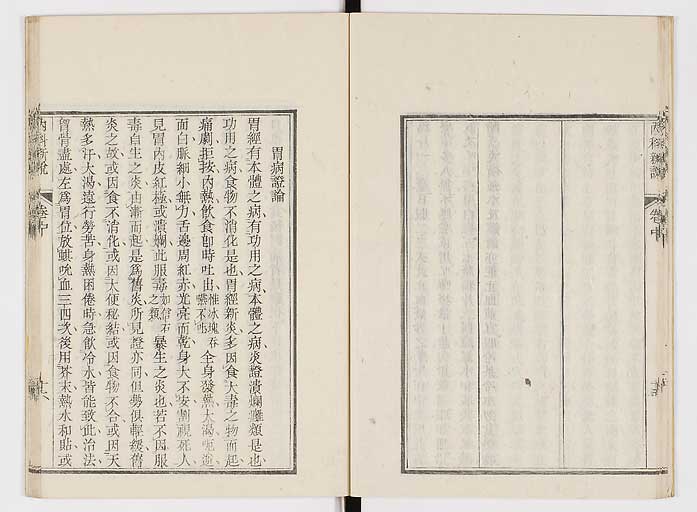 胃病證論
胃經有本體之病有功用之病本體之病炎證潰爛難類是也
功用之病食物不消化是也胃經新炎多因食大毒之物而起
痛劇拒按內熱飲食卽時吐出惟冰塊吞嚥不吐全身發熱大渴呃逆
面白脈細小無力舌邊周紅赤光亮而乾身大不安割視死人
見胃內皮紅極或潰爛此服毒如信石之類暴生之炎也若不因服
毒自生之炎由漸而起是爲舊炎所見證亦同但勢俱輕緩舊
炎之故或因食不消化或因大便秘結或因食物不合或因天
熱多汗大渴遠行勞苦身熱困倦時急飲冷水皆能致此治法
胷骨盡處左爲胃位放蜞吮血三四次後用芥末熱水和貼或
內科新說
卷中
內科新說
卷中